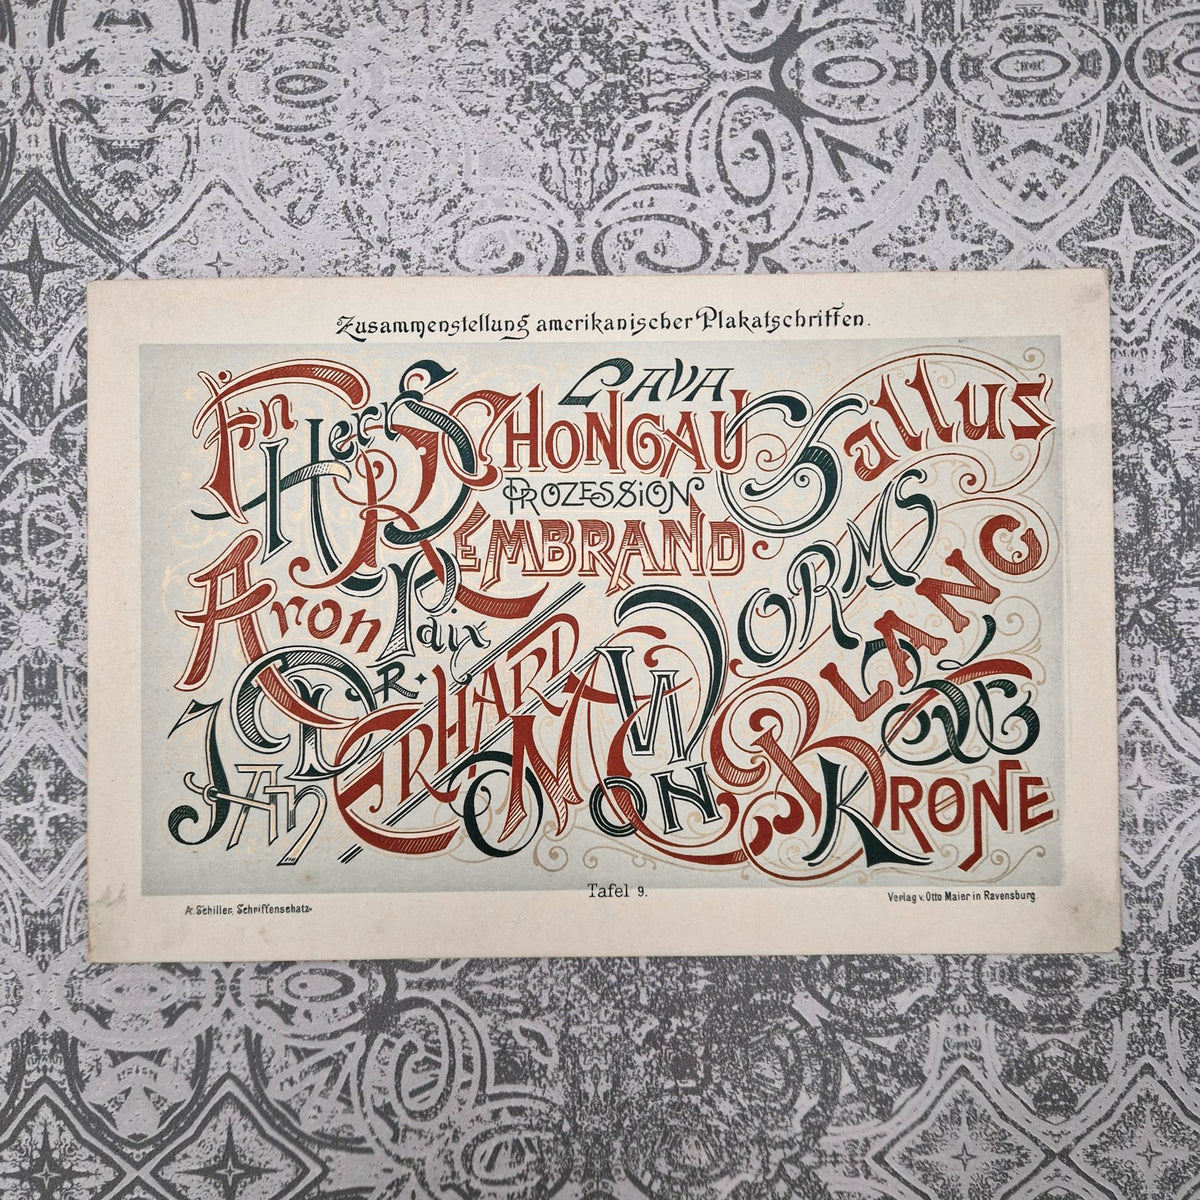 Zusammenstellung amerikanischer Plakatschriften.
LAVA
En
Herrn
SCHONGAU
Gallus
PROZESSION
REMBRAND
WORMS
Aron
Pdix
BLANC
DR.
ERHARD
JAN
NON
KRONE
Tafel 9.
A. Schiller, Schriftenschatz.
Verlag v. Otto Maier in Ravensburg.